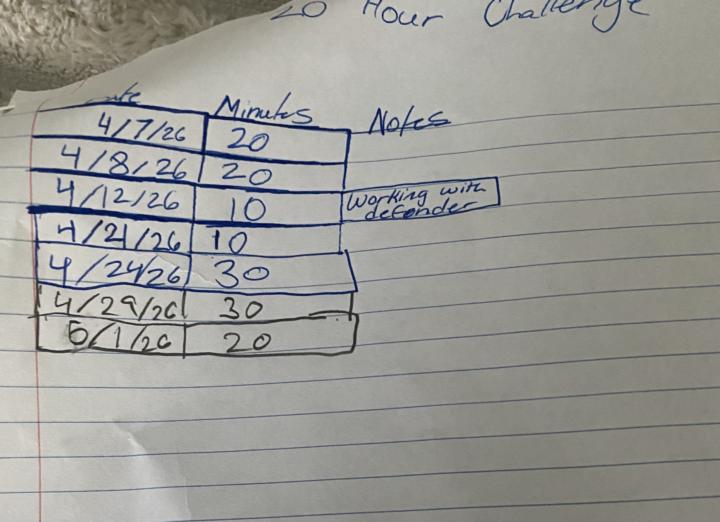 20 Hour Challenge
Date Minutes Notes
4/7/26 20
4/8/26 20
4/12/26 10 Working with
defender
4/21/26 10
4/24/26 30
4/29/26 30
5/1/26 20